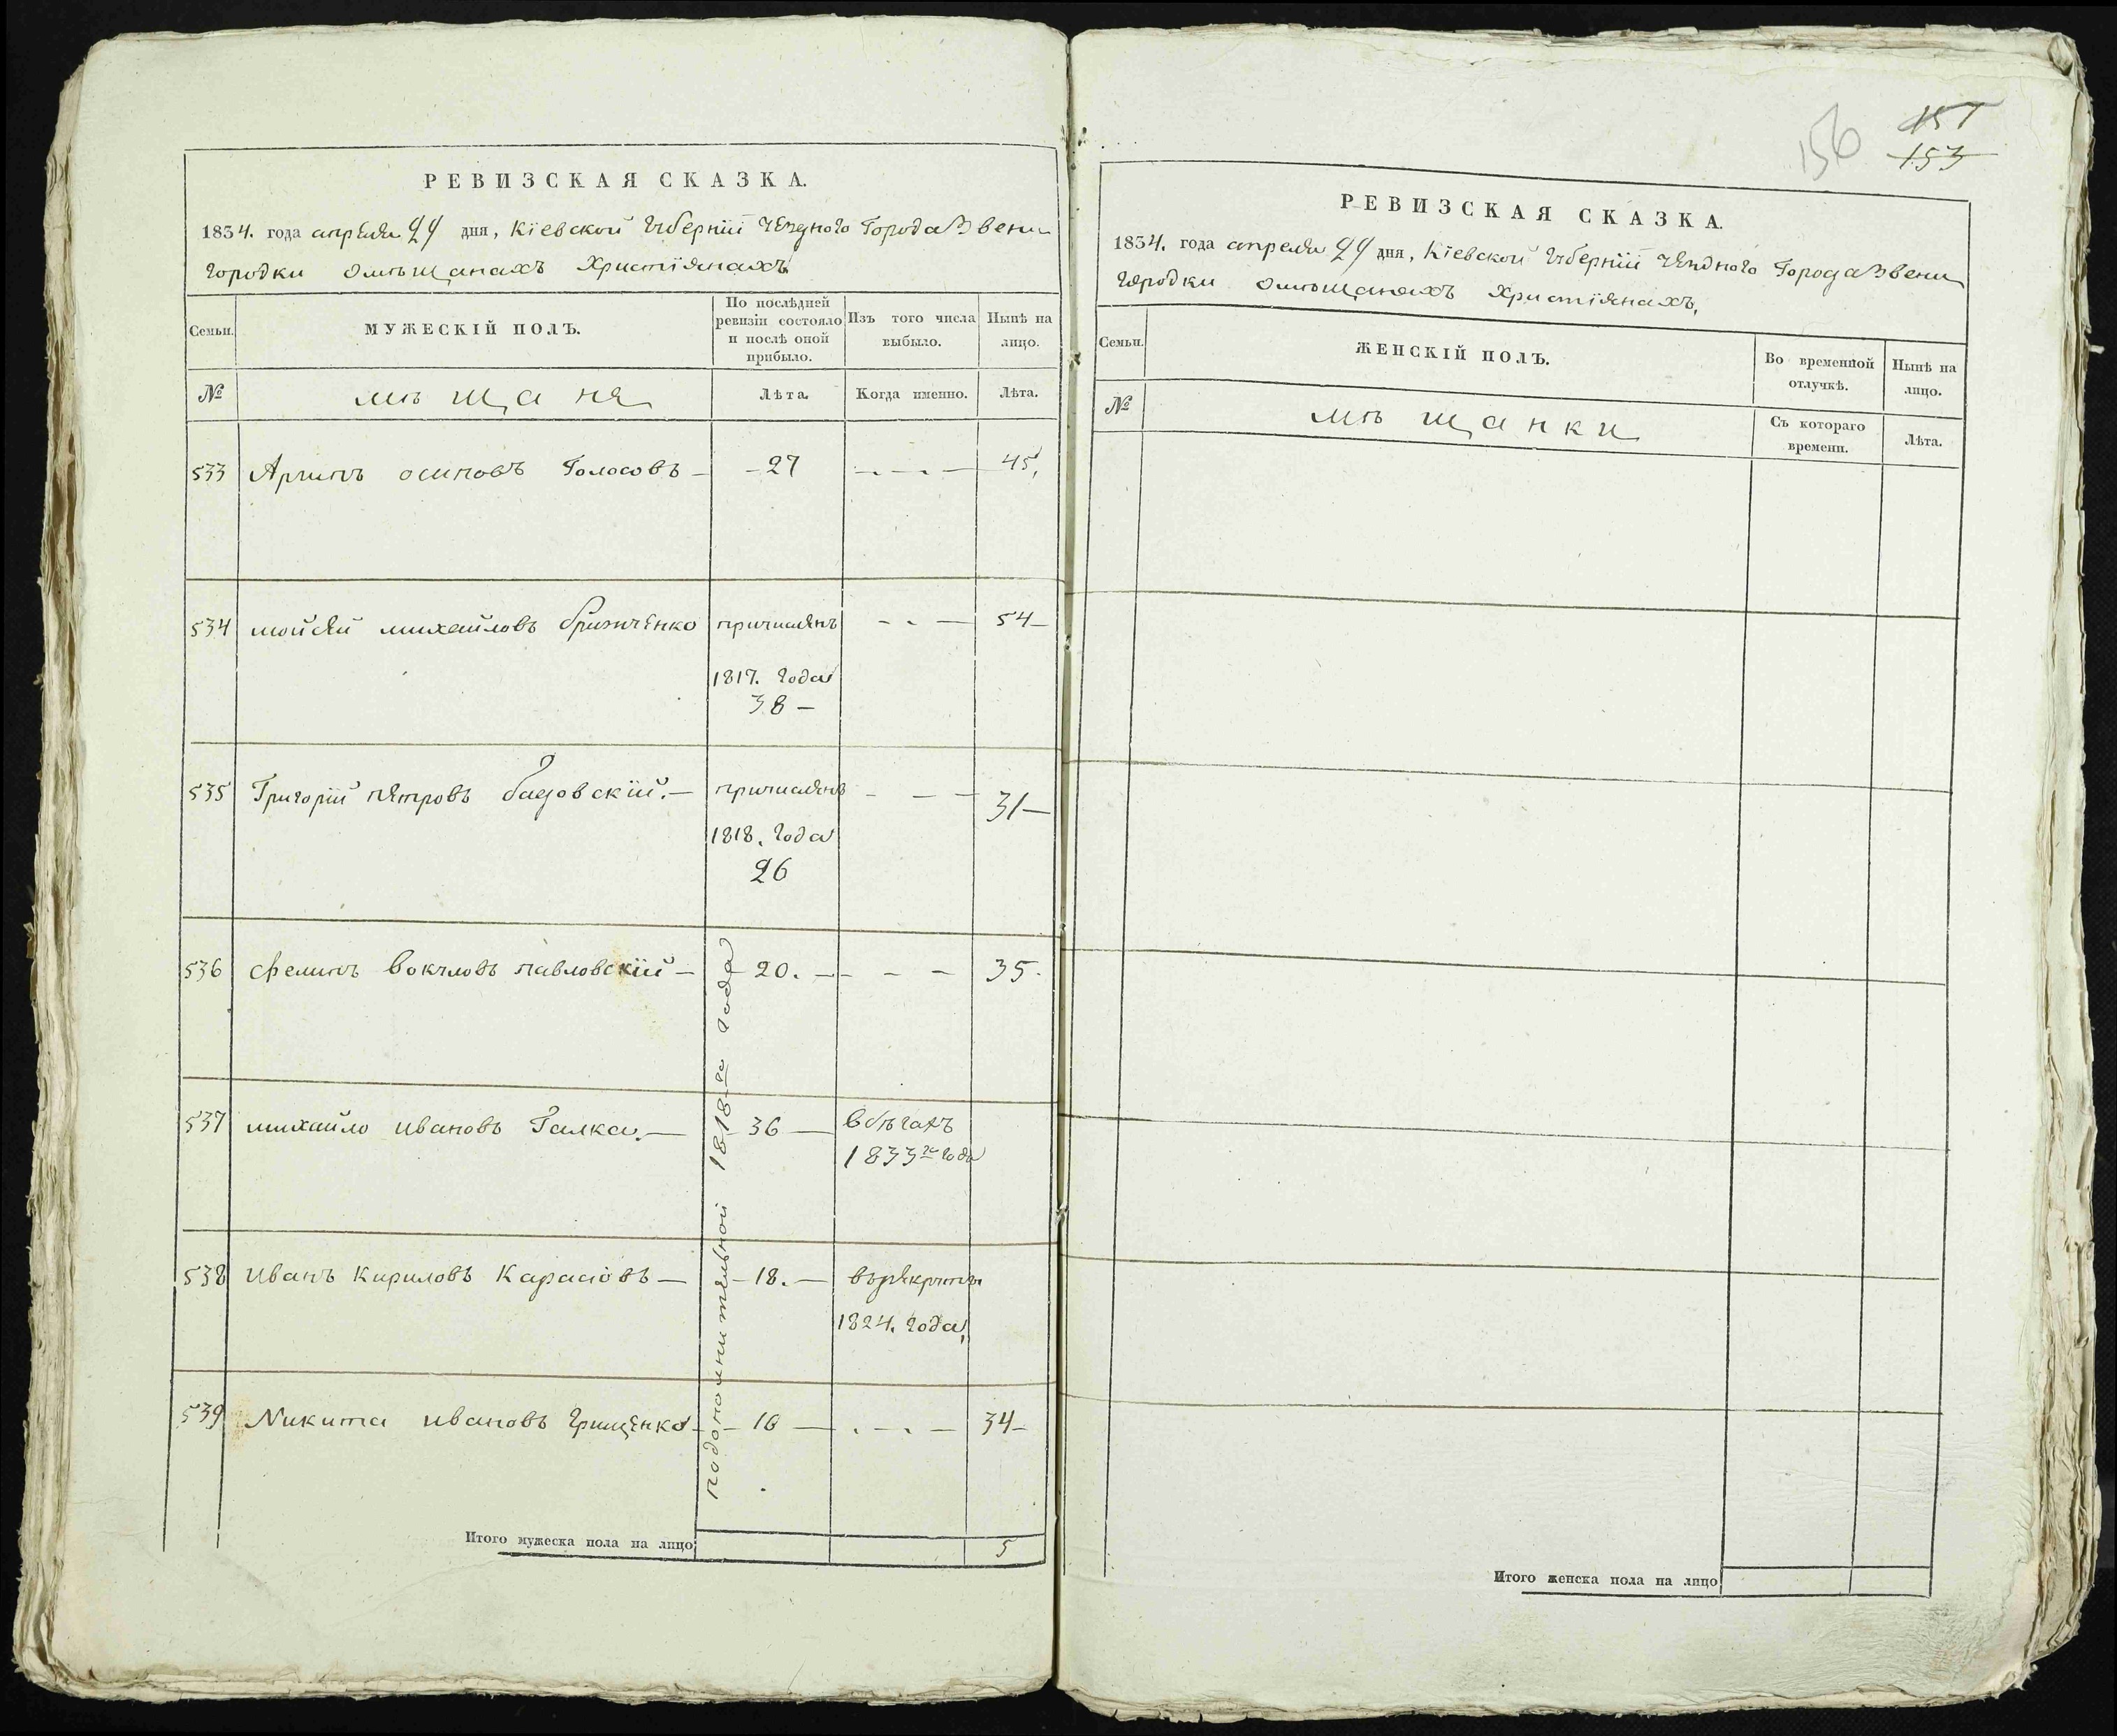 РЕВИЗСКАЯ СКАЗКА.
1834. года апреля 24 дня, Кіевской Губерніи уезднаго Города Звени
городки о мѣщанахъ христіянахъ
Семьи. МУЖЕСКІЙ ПОЛЪ. По послѣдней ревизіи состояло и послѣ оной прибыло. Изъ того числа выбыло. Нынѣ на лицо.
№ мѣщаня Лѣта. Когда именно. Лѣта.
533 осиповъ Голосовъ — 27 — 45,
534 мойсей михайловъ причисленъ — 54 —
1817. года
38 —
535 Григорій петровъ причисленъ — 31 —
1818. года
26
536 Филипъ павловскій — 20. — 35.
537 михайло ивановъ Галка. — 36 — в бѣгахъ
1833го года
538 иванъ Кириловъ — 18. — в рекруты
1824. года,
539 Никита ивановъ грищенко — 16 — 34 —
по дополнительной 1818го года
Итого мужеска пола на лицо 5
156
153
РЕВИЗСКАЯ СКАЗКА.
1834. года апреля 24 дня, Кіевской Губерніи уезднаго Города Звени
городки о мѣщанахъ христіянахъ,
Семьи. ЖЕНСКІЙ ПОЛЪ. Во временной отлучкѣ. Нынѣ на лицо.
№ мѣщанки Съ котораго времени. Лѣта.
Итого женска пола на лицо